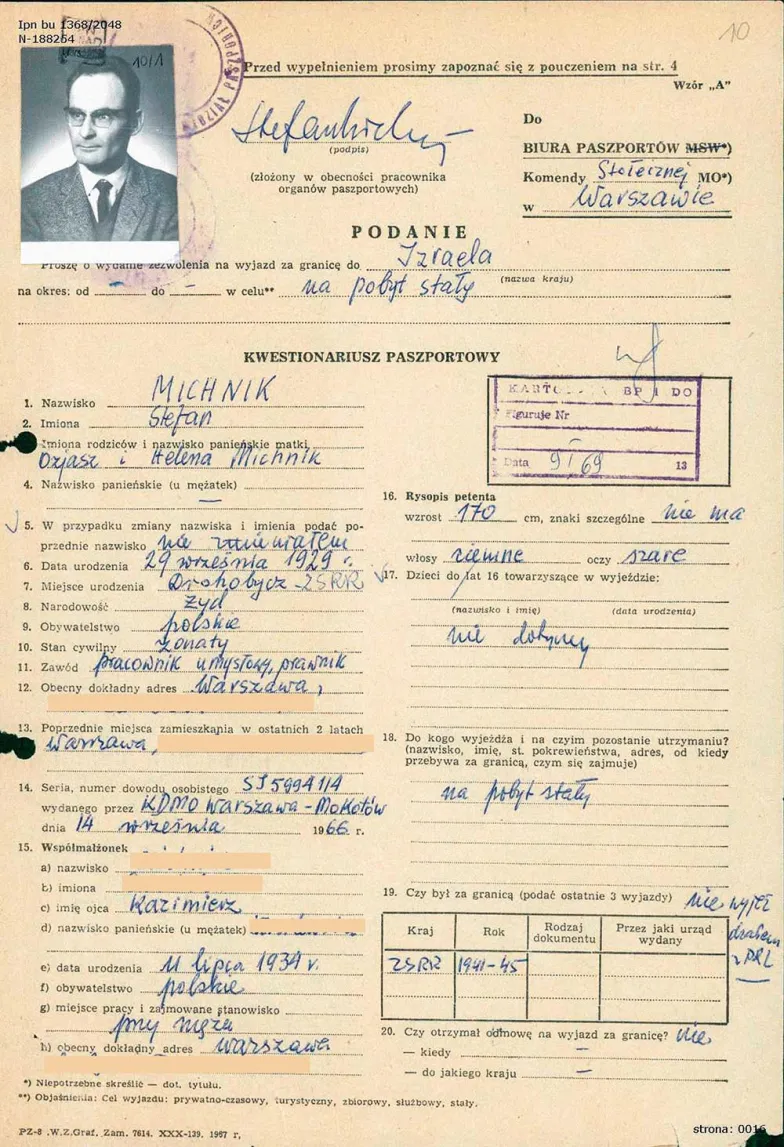 Ipn bu 1368/2048
N-188264
10
10/1
Przed wypełnieniem prosimy zapoznać się z pouczeniem na str. 4
Wzór „A”
(podpis)
(złożony w obecności pracownika
organów paszportowych)
Do
BIURA PASZPORTÓW MSW*)
Komendy Stołecznej MO*)
w Warszawie
PODANIE
Proszę o wydanie zezwolenia na wyjazd za granicę do Izraela
(nazwa kraju)
na okres: od – do – w celu** na pobyt stały
KWESTIONARIUSZ PASZPORTOWY
1. Nazwisko MICHNIK
2. Imiona Stefan
Imiona rodziców i nazwisko panieńskie matki
Ozjasz i Helena Michnik
4. Nazwisko panieńskie (u mężatek)
—
5. W przypadku zmiany nazwiska i imienia podać po-
przednie nazwisko nie zmieniałem
6. Data urodzenia 29 września 1929 r.
7. Miejsce urodzenia Drohobycz ZSRR
8. Narodowość żyd
9. Obywatelstwo polskie
10. Stan cywilny żonaty
11. Zawód pracownik umysłowy, prawnik
12. Obecny dokładny adres Warszawa,
13. Poprzednie miejsca zamieszkania w ostatnich 2 latach
Warszawa,
14. Seria, numer dowodu osobistego
wydanego przez KDMO Warszawa-Mokotów
dnia 14 września 1966 r.
15. Współmałżonek
a) nazwisko
b) imiona
c) imię ojca Kazimierz
d) nazwisko panieńskie (u mężatek)
e) data urodzenia 11 lipca 1934 r.
f) obywatelstwo polskie
g) miejsce pracy i zajmowane stanowisko
przy mężu
h) obecny dokładny adres Warszawa
*) Niepotrzebne skreślić — dot. tytułu.
**) Objaśnienia: Cel wyjazdu: prywatno-czasowy, turystyczny, zbiorowy, służbowy, stały.
PZ-8 .W.Z.Graf. Zam. 7614. XXX-139. 1967 r.
BP I DO
Figuruje Nr
–
Data 9/69 13
16. Rysopis petenta
wzrost 170 cm, znaki szczególne nie ma
włosy ciemne oczy szare
17. Dzieci do lat 16 towarzyszące w wyjeździe:
(nazwisko i imię) (data urodzenia)
nie dotyczy
18. Do kogo wyjeżdża i na czyim pozostanie utrzymaniu?
(nazwisko, imię, st. pokrewieństwa, adres, od kiedy
przebywa za granicą, czym się zajmuje)
na pobyt stały
19. Czy był za granicą (podać ostatnie 3 wyjazdy) nie
z PRL
Kraj Rok Rodzaj dokumentu Przez jaki urząd wydany
ZSRR 1941-45
20. Czy otrzymał odmowę na wyjazd za granicę? nie
— kiedy –
— do jakiego kraju –
strona: 0016